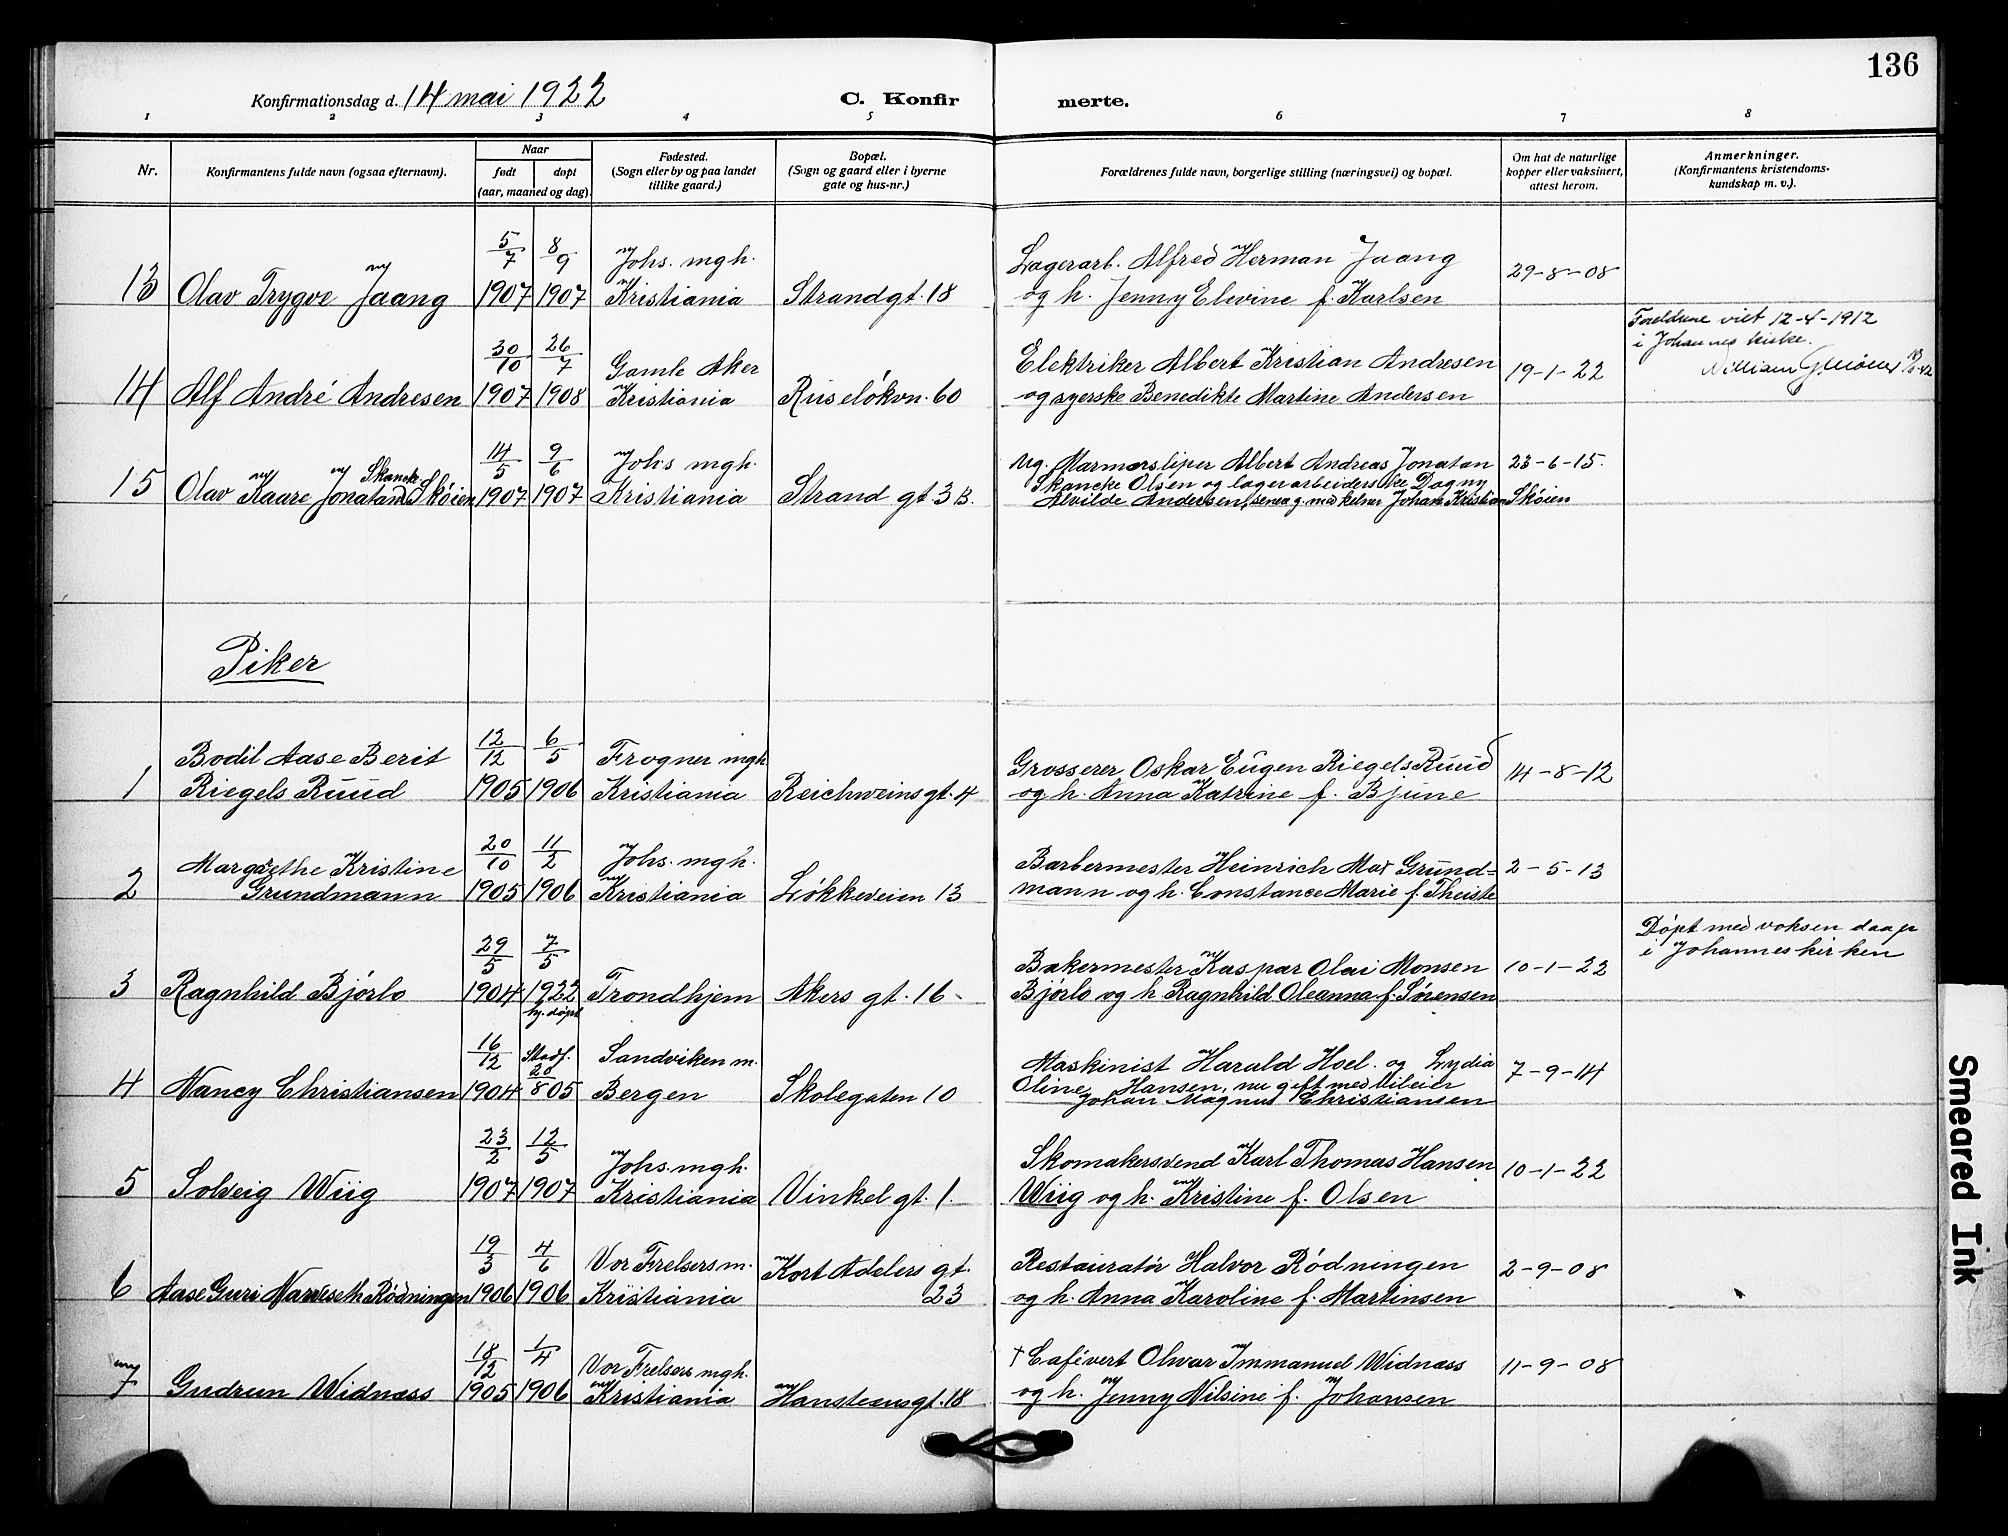 136
Konfirmationsdag d. 14 mai 1922
C. Konfir
merte.
1 2 3 4 5 6 7 8
Nr.
Konfirmantens fulde navn (ogsaa efternavn).
Naar
født
døpt
(aar, maaned og dag)
Fødested.
(Sogn eller by og paa landet
tillike gaard.)
Bopæl.
(Sogn og gaard eller i byerne
gate og hus-nr.)
Forældrenes fulde navn, borgerlige stilling (næringsvei) og bopæl.
Om hat de naturlige
kopper eller vaksinert,
attest herom.
Anmerkninger.
(Konfirmantens kristendoms-
kundskap m. v.).
5/7 8/9 Johs. mgh. Lagerarb. Alfred Herman Jaang
13 Olav Trygve Jaang 1907 1907 Kristiania Strandgt. 18 og h. Jenny Elevine f. Karlsen 29-8-08
Foreldrene viet 12-4-1912
i Johannes kirke.
30/10 26/7 Gamle Aker Elektriker Albert Kristian Andresen
14 Alf André Andresen 1907 1908 Kristiania Ruseløkvn. 60 og syerske Benedikte Martine Andersen 19-1-22
14/5 9/6 Johs mgh. Ug. Marmorsliper Albert Andreas Jonatan 23-6-15.
Skancke
15 Olav Kaare Jonatan Skøien 1907 1907 Kristiania Strand gt 3 B. Skancke Olsen og lagerarbeiderske Dagny
Alvilde Andersen, senea g. med kelner Johan Kristian Skøien
Piker
Bodil Aase Berit 12/12 6/5 Frogner mgh Grosserer Oskar Eugen Riegels Ruud
1 Riegels Ruud 1905 1906 Kristiania Reichweinsgt. 4 og h. Anna Katrine f. Bjune 14-8-12
Margrethe Kristine 20/10 11/2 Johs. mgh. Barbermester Heinrich Max Grund=
2 Grundmann 1905 1906 Kristiania Løkkeveien 13 mann og h. Constance Marie f. Theiste 2-5-13
Døpt med voksen daap
i Johanneskirken
29/5 7/5 Bakermester Kaspar Olai Monsen
3 Ragnhild Bjørlo 1904 1922 Trondhjem Akers gt. 16 Bjørlo og h. Ragnhild Oleanna f. Sørensen 10-1-22
hj. døpt
16/12 Stadf. 20/8 05 Sandviken m. Maskinist Harald Hoel. og Lydia
4 Nancy Christiansen 1904 Bergen Skolegaten 10 Oline Hansen, nu gift med 7-9-14
Johan Magnus Christiansen
23/2 12/5 Johs. mgh. Skomakersvend Karl Thomas Hansen
5 Solveig Wiig 1907 1907 Kristiania Vinkel gt. 1. Wiig og h. Kristine f. Olsen 10-1-22
19/3 4/6 Vor Frelsers m. Kort Adelers gt. Restauratør Halvor Rødningen
6 Aase Guri Rødningen 1906 1906 Kristiania 23 og h. Anna Karoline f. Martinsen 2-9-08
18/12 1/4 Vor Frelsers mgh. † Cafévert Olvar Immanuel Widnæss
7 Gudrun Widnæss 1905 1906 Kristiania Hansteensgt. 18 og h. Jenny Nilsine f. Johansen 11-9-08
Smeared Ink